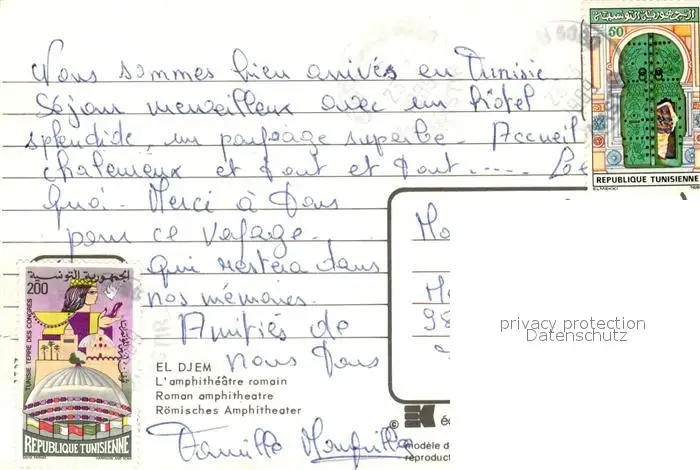 Nous sommes bien arrivés en Tunisie
Séjour merveilleux avec un hôtel
splendide, un paysage superbe. Accueil
chaleureux et tout et tout.....
quoi. Merci à tous
pour ce voyage.
qui restera dans
nos mémoires.
Amitiés de
nous tous
Famille
الجمهورية التونسية
60
REPUBLIQUE TUNISIENNE
ELMEKKI
الجمهورية التونسية
200
TUNISIE TERRE DES CONGRES
REPUBLIQUE TUNISIENNE
EL DJEM
L'amphithéâtre romain
Roman amphitheatre
Römisches Amphitheater
©
modèle d
reproduct
98
privacy protection
Datenschutz